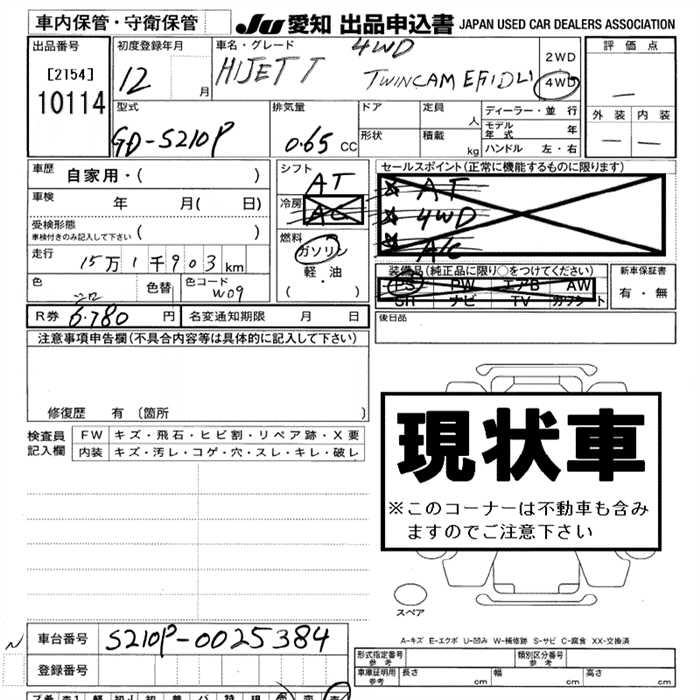 車内保管・守衛保管
JU 愛知 出品申込書 JAPAN USED CAR DEALERS ASSOCIATION
出品番号
[2154]
10114
初度登録年月
12 月
車名・グレード
4WD
HIJET T TWINCAM EFI DLI
2WD
4WD
評価点
—
外装 内装
— —
型式
GD-S210P
排気量
0.65 CC
ドア
定員
人
形状
積載
kg
ディーラー・並行
モデル年式 年
ハンドル 左・右
車歴 自家用・( )
車検 年 月( 日)
受検形態
車検付きのみ記入して下さい ( )
走行 15万1千903km
色 シロ 色替 色コード W09
R券 6.780 円 名変通知期限 月 日
シフト
AT
冷房
AC
燃料
ガソリン
軽・油
・( )
セールスポイント(正常に機能するものに限ります)
☆ AT
☆ 4WD
☆ A/C
装備品(純正品に限り○をつけてください)
PS PW エアB AW
SR ナビ TV カワシート
新車保証書
有・無
後日品
注意事項申告欄(不具合内容等は具体的に記入して下さい)
修復歴 有(箇所 )
検査員記入欄
FW キズ・飛石・ヒビ割・リペア跡・X要
内装 キズ・汚レ・コゲ・穴・スレ・キレ・破レ
現状車
※このコーナーは不動車も含み
ますのでご注意下さい
スペア
A-キズ E-エクボ U-凹み W-補修跡 S-サビ C-腐食 XX-交換済
車台番号 S210P-0025384
登録番号
形式指定番号
参考
類別区分番号
参考
車庫証明用
参考
長さ cm 幅 cm 高さ cm